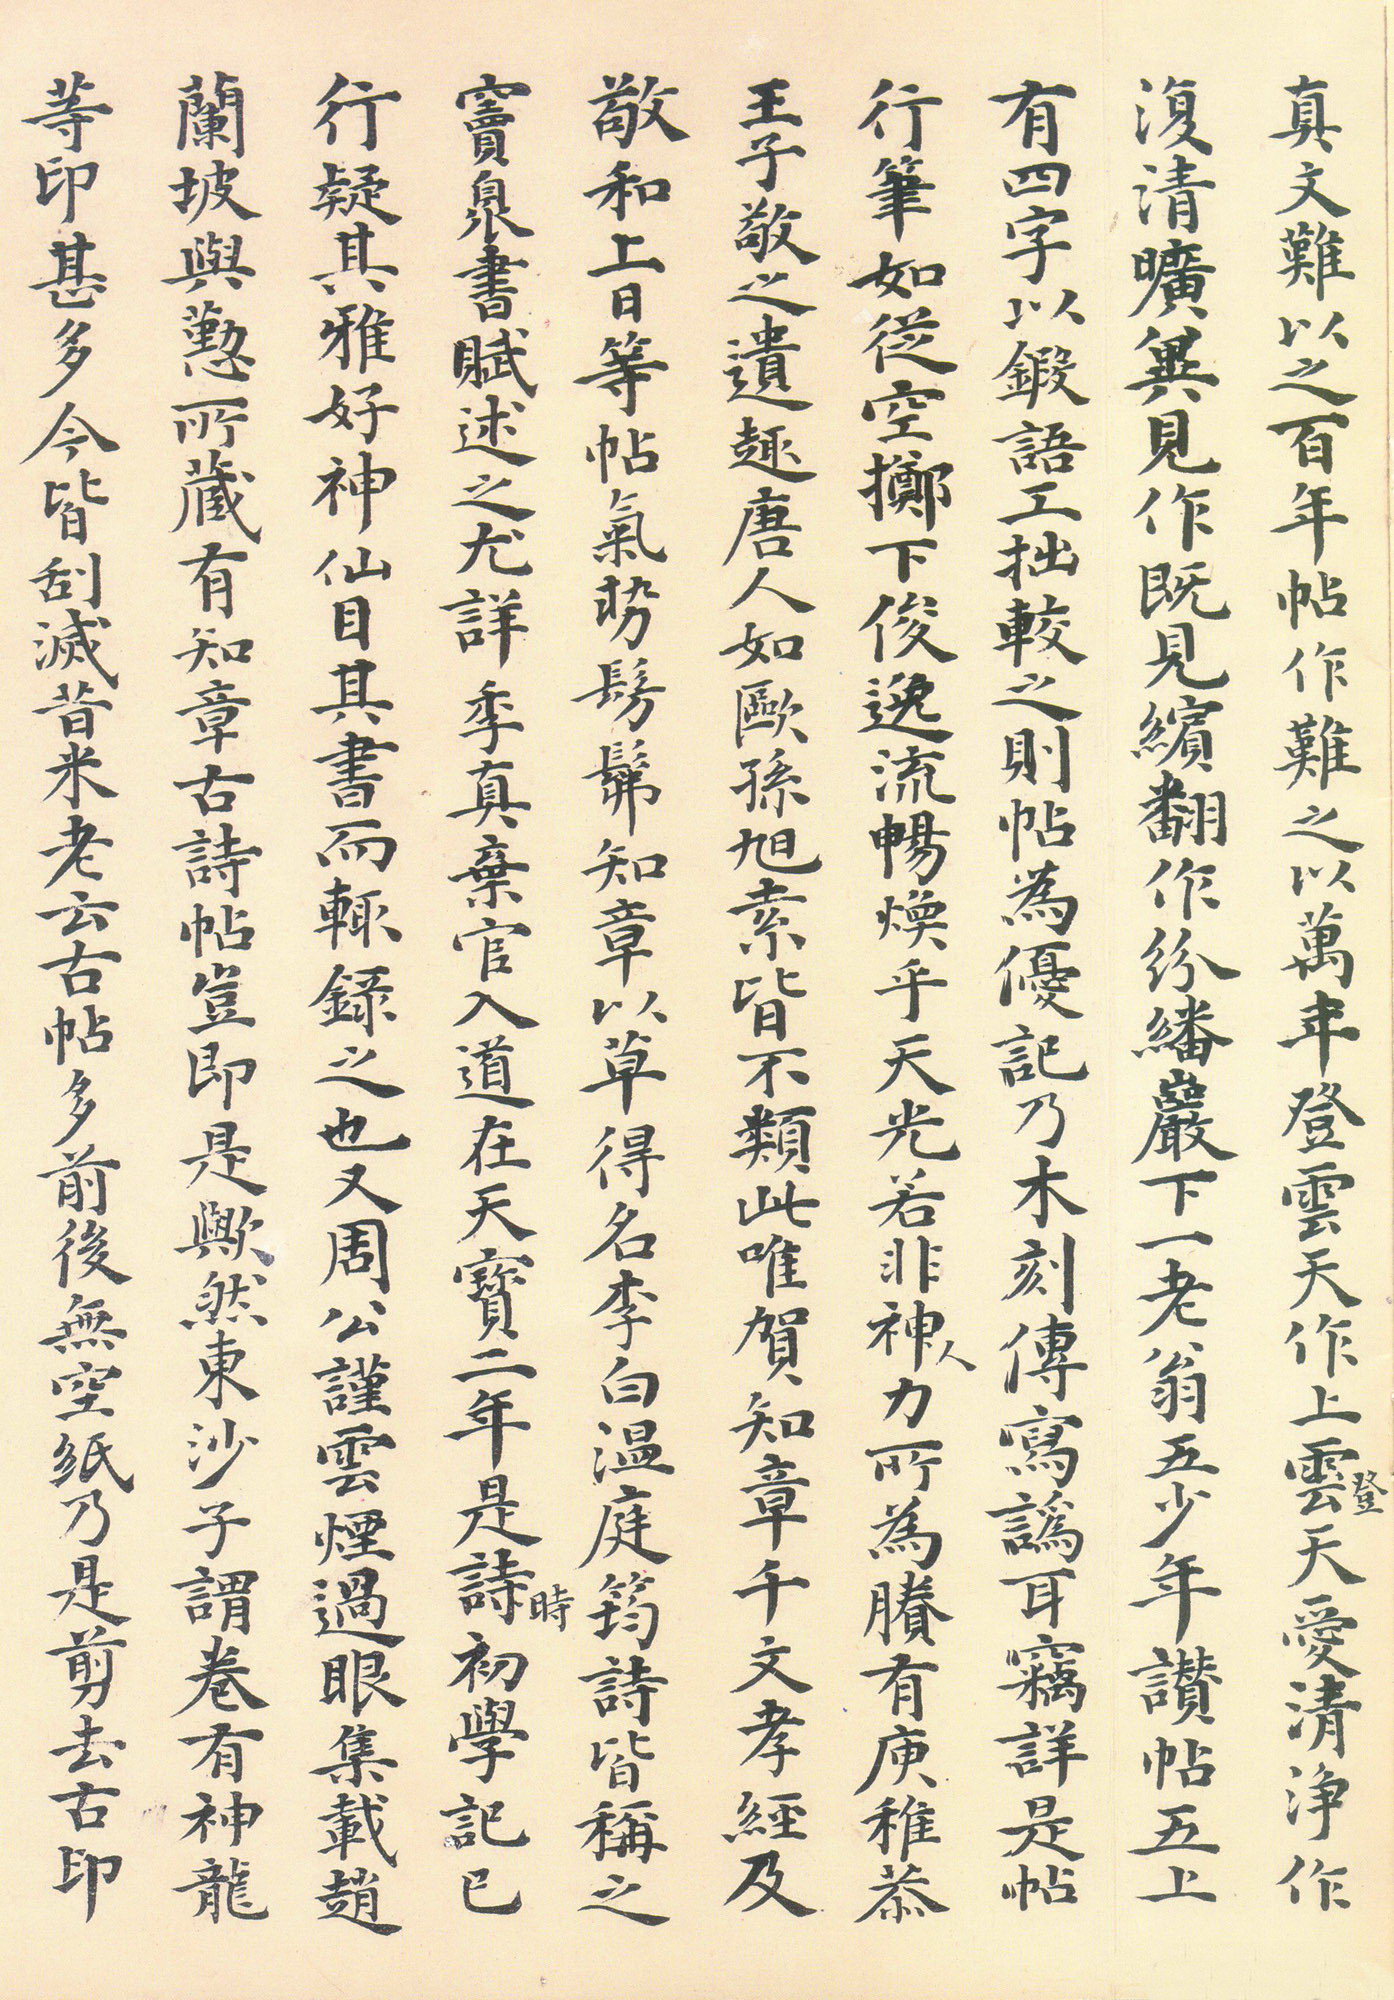 真文難以之百年帖作難之以萬年登雲天作上雲天愛清淨作
登
復清曠異見作既見繽翻作紛繙巖下一老翁五少年讃帖五上
有四字以鍛語工拙較之則帖為優記乃木刻傳寫譌耳竊詳是帖
行筆如從空擲下俊逸流暢煥乎天光若非神力所為賸有庾稚恭
人
王子敬之遺趣唐人如歐孫旭素皆不類此唯賀知章千文孝經及
敬和上日等帖氣勢髣髴知章以草得名李白温庭筠詩皆稱之
竇臮書賦述之尤詳季真棄官入道在天寶二年是詩初學記已
時
行疑其雅好神仙目其書而輒錄之也又周公謹雲煙過眼集載趙
蘭坡與懃所藏有知章古詩帖豈即是歟然東沙子謂卷有神龍
等印甚多今皆刮滅昔米老云古帖多前後無空紙乃是剪去古印